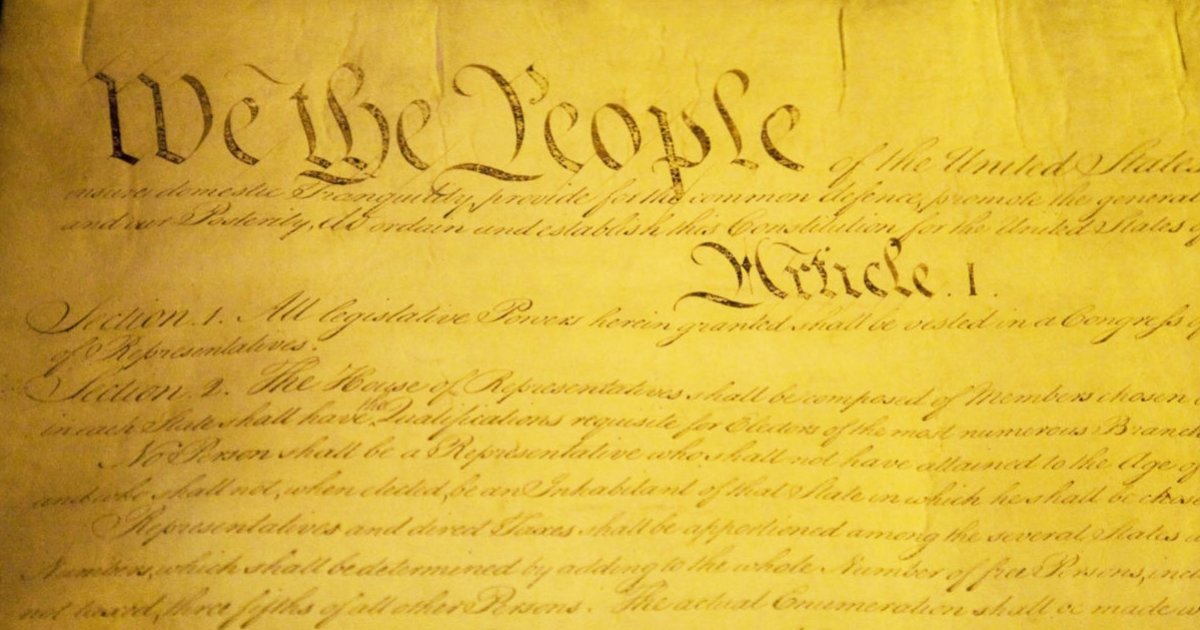 We the People of the United States
insure domestic Tranquility, provide for the common defence, promote the general
and our Posterity, do ordain and establish this Constitution for the United States of
Article. I.
Section. 1. All legislative Powers herein granted shall be vested in a Congress of
of Representatives.
Section. 2. The House of Representatives shall be composed of Members chosen
in each State shall have the Qualifications requisite for Electors of the most numerous Branch
No Person shall be a Representative who shall not have attained to the Age of
and who shall not, when elected, be an Inhabitant of that State in which he shall be chosen
Representatives and direct Taxes shall be apportioned among the several States
Numbers, which shall be determined by adding to the whole Number of free Persons, inc
not taxed, three fifths of all other Persons. The actual Enumeration shall be made